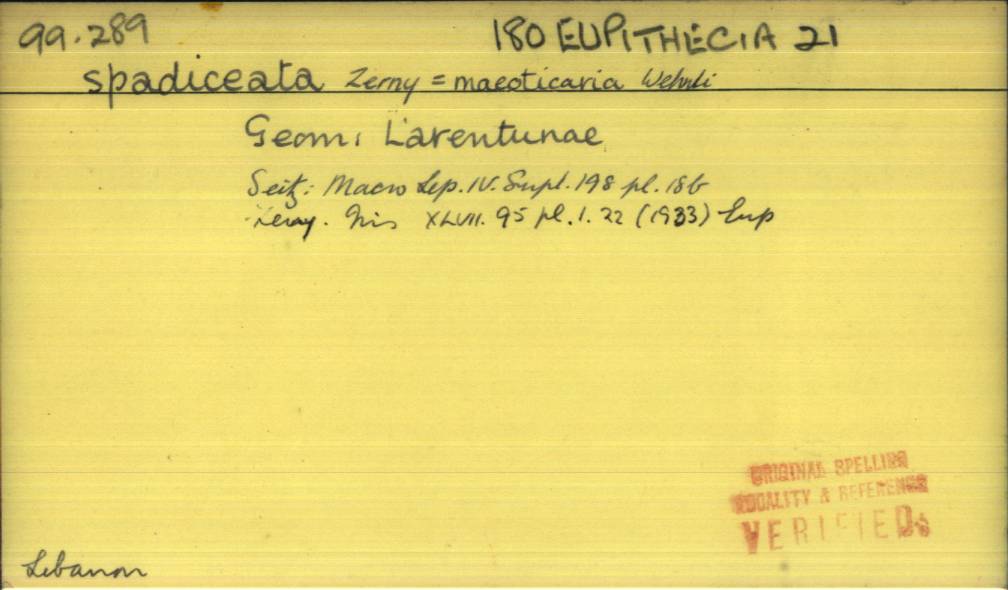 99.289 180 EUPITHECIA 21
spadiceata Zerny = maeoticaria Wehrli
Geom: Larentunae
Seitz: Macro Lep. IV. Supl. 198 pl. 18b
Zerny. Iris XLVII. 95 pl. 1. 22 (1933) Eup
ORIGINAL SPELLING
LOCALITY & REFERENCE
VERIFIED
Lebanon